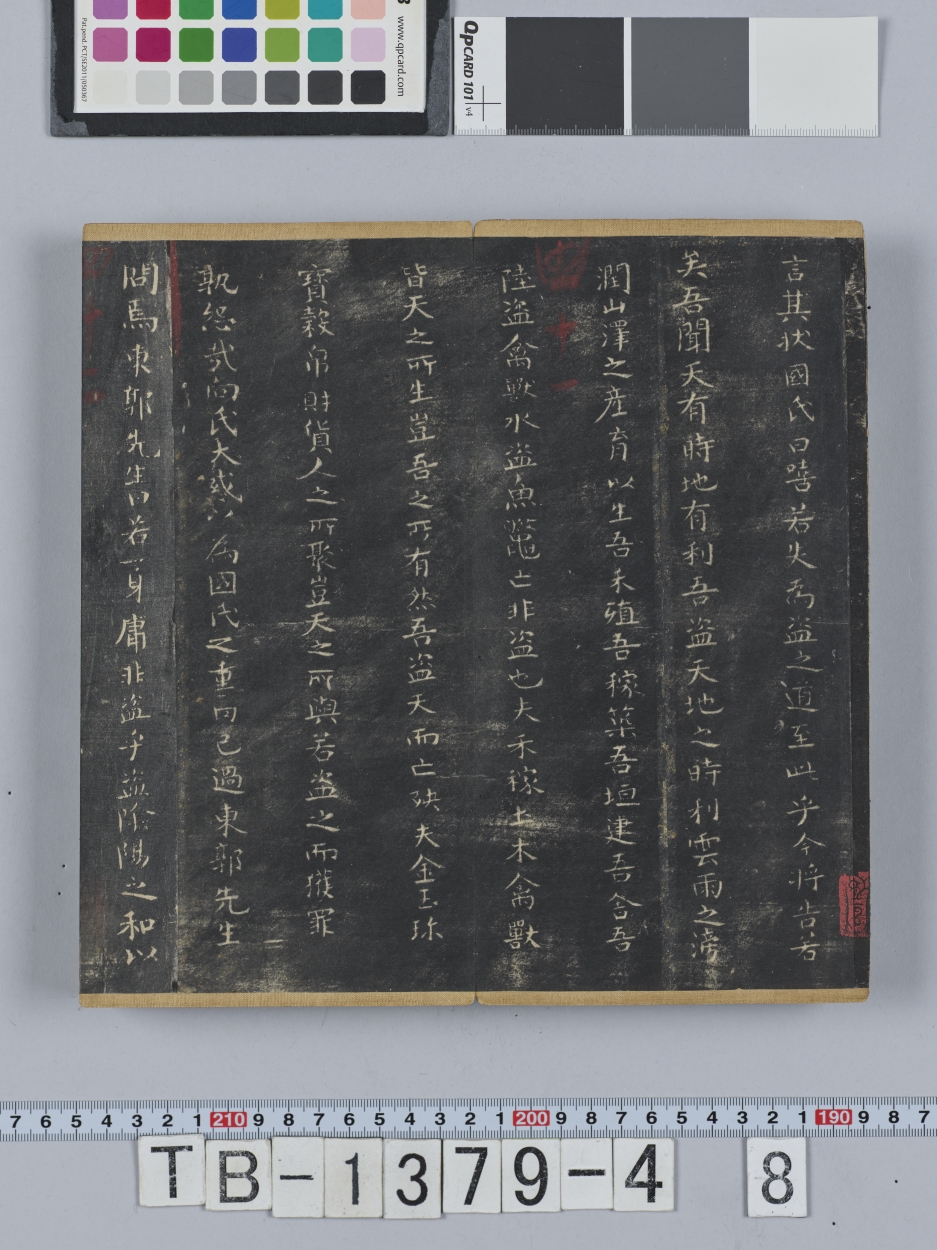 言其狀國氏曰嘻若失為盜之道至此乎今將告若
矣吾聞天有時地有利吾盜天地之時利雲雨之滂
潤山澤之產育以生吾禾殖吾稼築吾垣建吾舍吾
陸盜禽獸水盜魚鼈亡非盜也夫禾稼土木禽獸
皆天之所生豈吾之所有然吾盜天而亡殃夫金玉珎
寶穀帛財貨人之所聚豈天之所與若盜之而獲罪
孰怨哉向氏大惑以為國氏之重罔己過東郭先生
問焉東郭先生曰若一身庸非盜乎盜陰陽之和以
www.qpcard.com
Pat.pend. PCT/SE2011/050367
QpCARD 101 v4
7 6 5 4 3 2 1 210 9 8 7 6 5 4 3 2 1 200 9 8 7 6 5 4 3 2 1 190 9 8 7
TB-1379-4 8